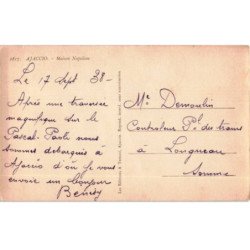 1817. AJACCIO. - Maison Napoléon
Le 17 Sept 38 -
Après une traversée
magnifique sur le
Pascal-Paoli nous
sommes débarqués à
Ajaccio d'où je vous
envoie un bonjour
Mr Demoulin
Controleur Pl. des trans
à Longueau
Somme